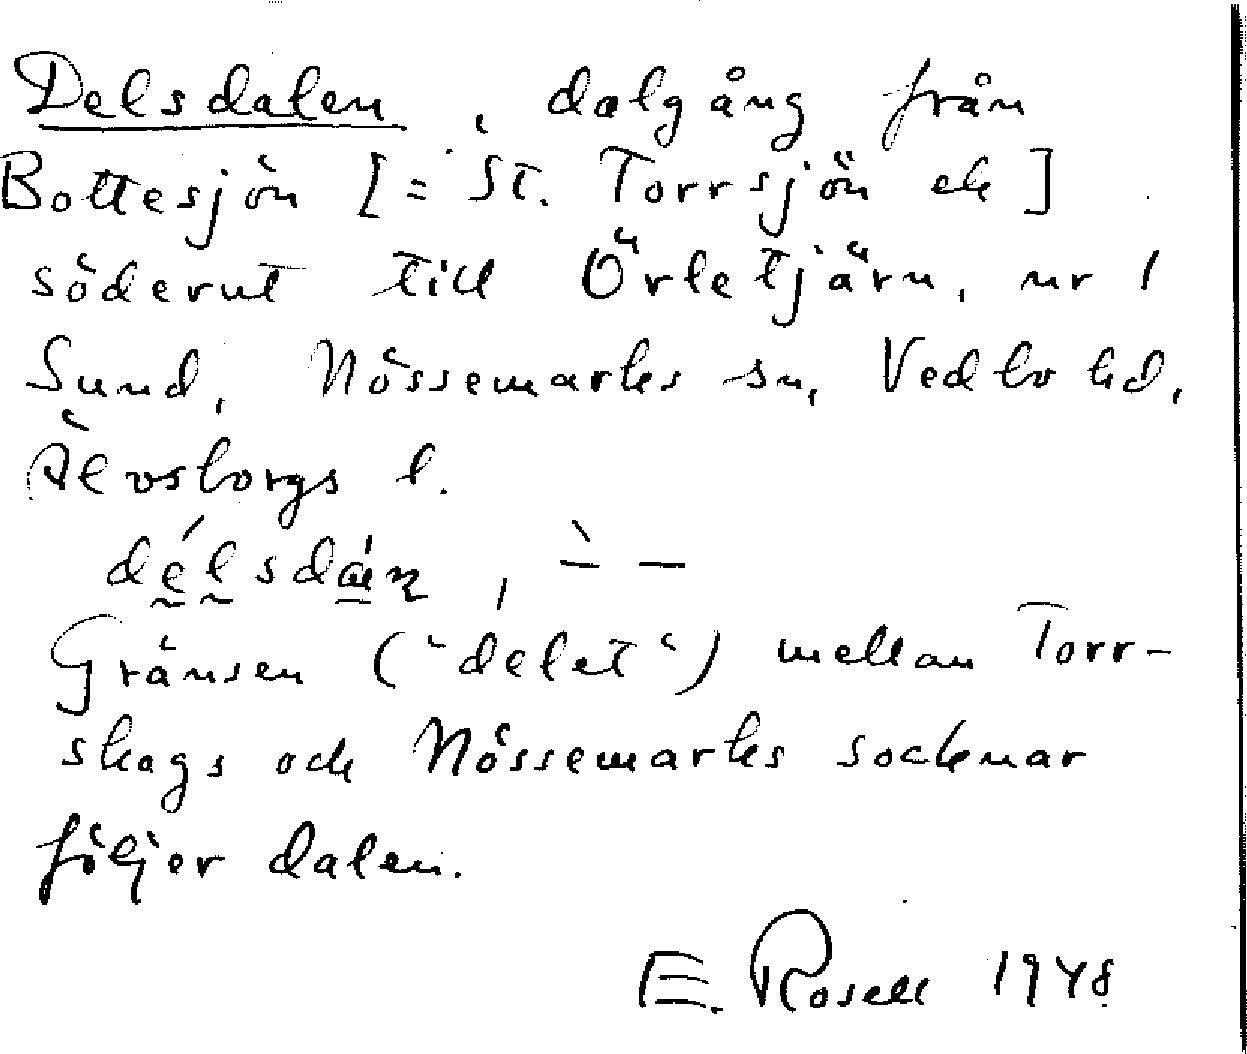 Delsdalen, dalgång från
Bottesjön [= St. Torrsjön ek]
söderut till Örletjärn, nr 1
Sund, Nössemarks sn, Vedbo hd,
Älvsborgs l.
délsdán, ̀– –
Gränsen ("delet") mellan Torr-
skogs och Nössemarks socknar
följer dalen.
E. Rosell 1948